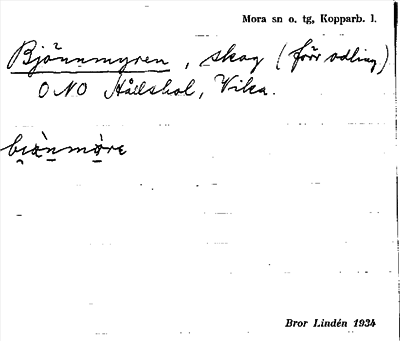 Mora sn o. tg, Kopparb. l.
Bjönnmyren, skog (förr odling)
ONO Hållshol, Vika.
Bror Lindén 1934